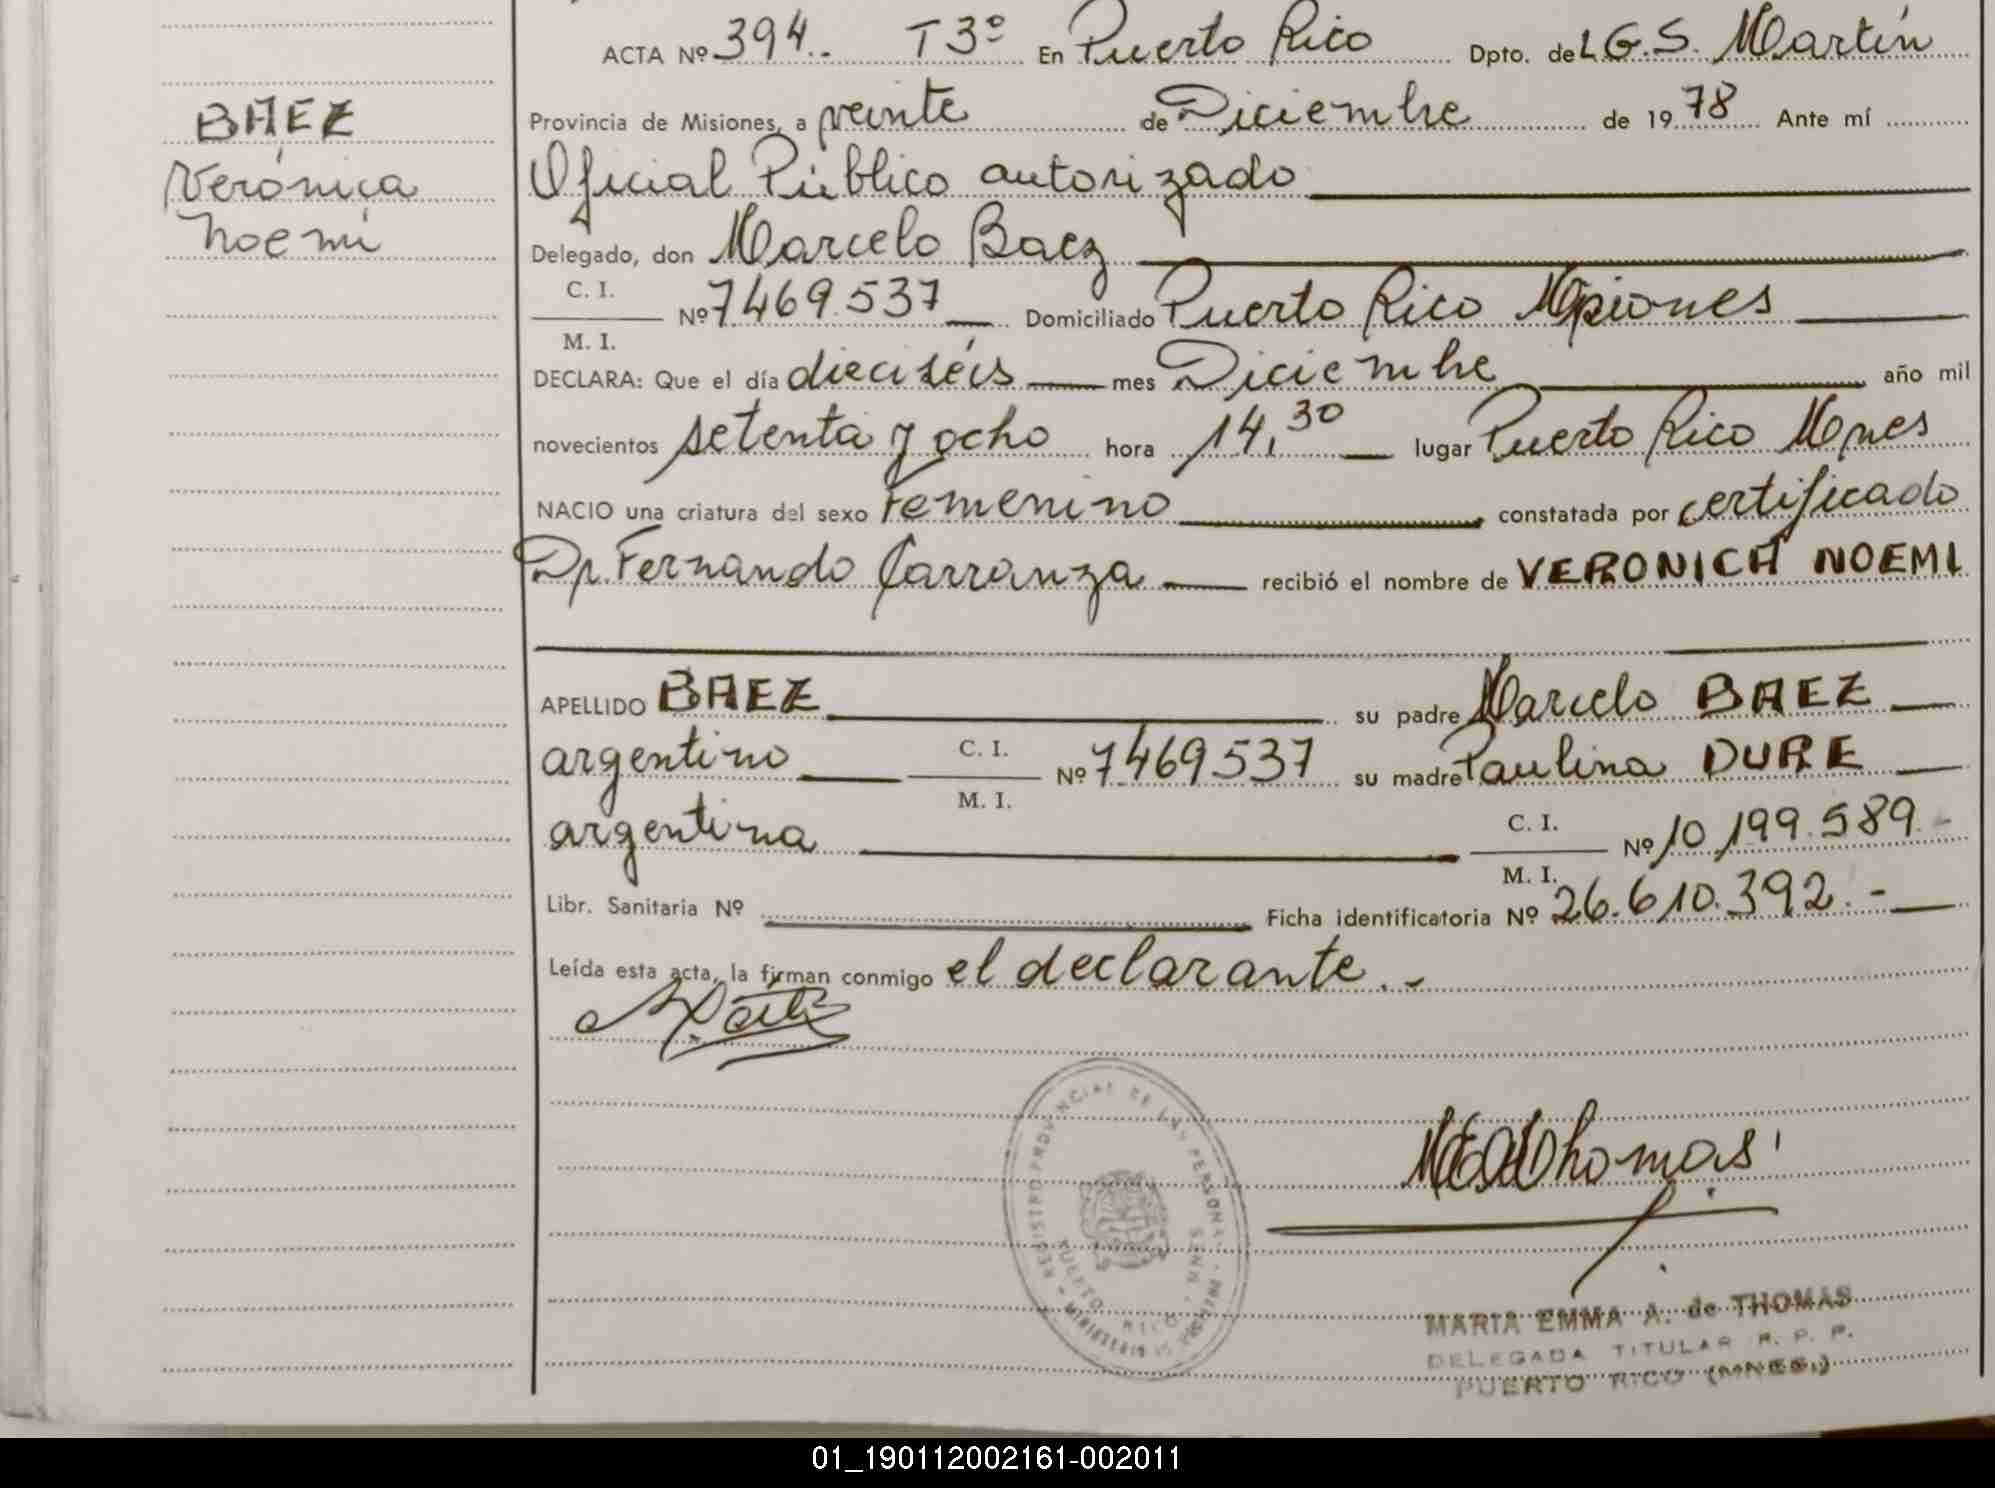 ACTA Nº 394.. T3º En Puerto Rico Dpto. de L G.S. Martín
BAEZ
Verónica
Noemí
Provincia de Misiones, a veinte de Diciembre de 1978 Ante mí
Oficial Público autorizado
Delegado, don Marcelo Baez
C. I.
M. I.
Nº 7469.537 Domiciliado Puerto Rico Misiones
DECLARA: Que el día dieciséis mes Diciembre año mil
novecientos setenta y ocho hora 14,30 lugar Puerto Rico Mnes
NACIO una criatura del sexo Femenino constatada por certificado
Dr. Fernando Carranza recibió el nombre de VERONICA NOEMI
APELLIDO BAEZ su padre Marcelo BAEZ
argentino C. I. M. I. Nº 7469537 su madre Paulina DURE
argentina C. I. M. I. Nº 10.199.589.-
Libr. Sanitaria Nº Ficha identificatoria Nº 26.610.392.-
Leída esta acta, la firman conmigo el declarante.-
REGISTRO PROVINCIAL DE LAS PERSONAS
PUERTO RICO
MINISTERIO
Thomas
MARIA EMMA A. de THOMAS
DELEGADA TITULAR R. P. P.
PUERTO RICO (MNES.)
01_190112002161-002011